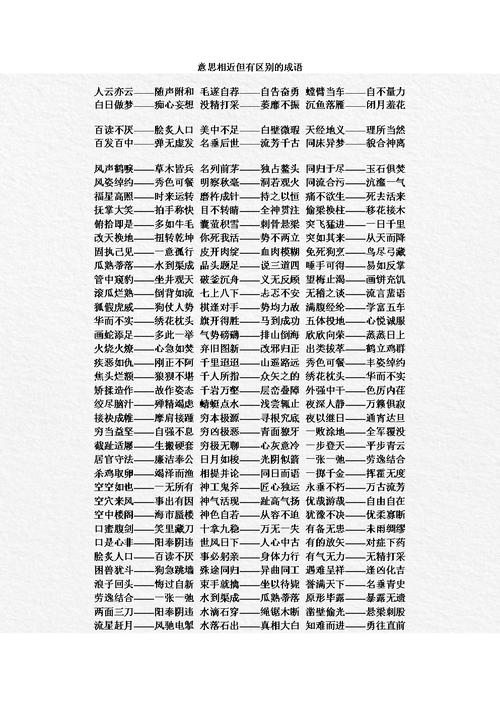 意思相近但有区别的成语
人云亦云——随声附和 毛遂自荐——自告奋勇 螳臂当车——自不量力
白日做梦——痴心妄想 没精打采——萎靡不振 沉鱼落雁——闭月羞花
百读不厌——脍炙人口 美中不足——白壁微瑕 天经地义——理所当然
百发百中——弹无虚发 名垂后世——流芳千古 同床异梦——貌合神离
风声鹤唳——草木皆兵 名列前茅——独占鳌头 同归于尽——玉石俱焚
风姿绰约——秀色可餐 明察秋毫——洞若观火 同流合污——沆瀣一气
福星高照——时来运转 磨杵成针——持之以恒 痛不欲生——死去活来
抚掌大笑——拍手称快 目不转睛——全神贯注 偷梁换柱——移花接木
俯拾即是——多如牛毛 囊萤积雪——刺骨悬梁 突飞猛进——一日千里
改天换地——扭转乾坤 你死我活——势不两立 突如其来——从天而降
固执己见——一意孤行 皮开肉绽——血肉模糊 兔死狗烹——鸟尽弓藏
瓜熟蒂落——水到渠成 品头题足——说三道四 唾手可得——易如反掌
管中窥豹——坐井观天 破釜沉舟——义无反顾 望梅止渴——画饼充饥
滚瓜烂熟——倒背如流 七上八下——忐忑不安 无稽之谈——流言蜚语
狐假虎威——狗仗人势 棋逢对手——势均力敌 满腹经纶——学富五车
华而不实——绣花枕头 旗开得胜——马到成功 五体投地——心悦诚服
画蛇添足——多此一举 气势磅礴——排山倒海 欣欣向荣——蒸蒸日上
火烧火燎——心急如焚 弃旧图新——改邪归正 出类拔萃——鹤立鸡群
疾恶如仇——刚正不阿 千里迢迢——山遥路远 秀色可餐——丰姿绰约
焦头烂额——狼狈不堪 千人所指——众矢之的 绣花枕头——华而不实
矫揉造作——故作姿态 千岩万壑——层峦叠嶂 外强中干——色厉内荏
绞尽脑汁——殚精竭虑 蜻蜓点水——浅尝辄止 夜深人静——万籁俱寂
接袂成帷——摩肩接踵 穷本极源——寻根究底 夜以继日——通宵达旦
穷当益坚——自强不息 穷凶极恶——青面獠牙 一败涂地——全军覆没
截趾适屦——生搬硬套 穷极无聊——心灰意冷 一步登天——平步青云
居官守法——廉洁奉公 日月如梭——光阴似箭 一张一弛——劳逸结合
杀鸡取卵——竭泽而渔 相提并论——同日而语 一掷千金——挥霍无度
空空如也——一无所有 神工鬼斧——匠心独运 永垂不朽——万古流芳
空穴来风——事出有因 神气活现——趾高气扬 优哉游哉——自由自在
空中楼阁——海市蜃楼 神色自若——从容不迫 犹豫不决——优柔寡断
口蜜腹剑——笑里藏刀 十拿九稳——万无一失 有备无患——未雨绸缪
口是心非——阳奉阴违 世风日下——人心中古 有的放矢——对症下药
脍炙人口——百读不厌 事必躬亲——身体力行 有气无力——无精打采
困兽犹斗——狗急跳墙 殊途同归——异曲同工 遇难呈祥——逢凶化吉
浪子回头——悔过自新 束手就擒——坐以待毙 誉满天下——名垂青史
劳逸结合——一张一弛 水到渠成——瓜熟蒂落 原形毕露——暴露无遗
两面三刀——阳奉阴违 水滴石穿——绳锯木断 凿壁偷光——悬梁刺股
流星赶月——风驰电掣 水落石出——真相大白 知难而进——勇往直前